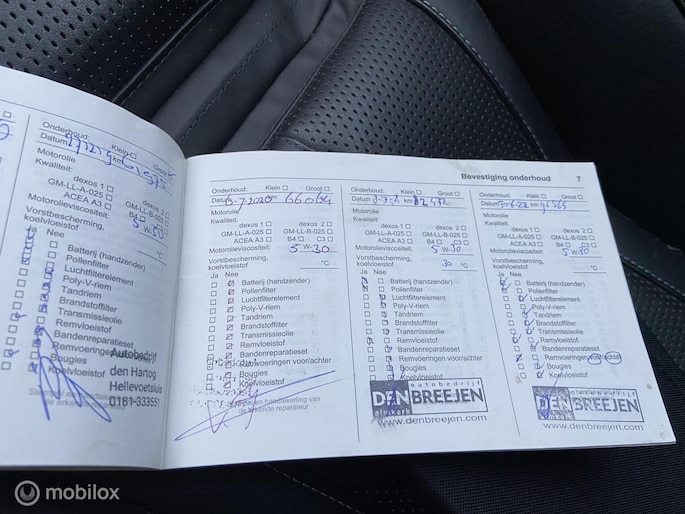 Onderhoud: Klein Groot
Datum km
Motorolie
Kwaliteit:
dexos 1
GM-LL-A-025
ACEA A3
Motorolieviscositeit:
Vorstbescherming,
koelvloeistof
Ja Nee
Batterij (handzender)
Pollenfilter
Luchtfilterelement
Poly-V-riem
Tandriem
Brandstoffilter
Transmissieolie
Remvloeistof
Bandenreparatieset
Remvoeringen
Bougies
Koelvloeistof
Autobedrijf
den Hartog
Hellevoetsluis
0181-333551
Bevestiging onderhoud 7
Onderhoud: Klein Groot
Datum 66064
Motorolie
Kwaliteit:
dexos 1 dexos 2
GM-LL-A-025 GM-LL-B-025
ACEA A3 B4 C3
Motorolieviscositeit: 5W-30
Vorstbescherming,
koelvloeistof °C
Ja Nee
Batterij (handzender)
Pollenfilter
Luchtfilterelement
Poly-V-riem
Tandriem
Brandstoffilter
Transmissieolie
Remvloeistof
Bandenreparatieset
Remvoeringen voor/achter
Bougies
Koelvloeistof
en handtekening van
de erkende reparateur
Onderhoud: Klein Groot
Datum km
Motorolie
Kwaliteit:
dexos 1 dexos 2
GM-LL-A-025 GM-LL-B-025
ACEA A3 B4 C3
Motorolieviscositeit: 5W-30
Vorstbescherming,
koelvloeistof 30 °C
Ja Nee
Batterij (handzender)
Pollenfilter
Luchtfilterelement
Poly-V-riem
Tandriem
Brandstoffilter
Transmissieolie
Remvloeistof
Bandenreparatieset
Remvoeringen voor/achter
Bougies
Koelvloeistof
autobedrijf
DEN BREEJEN
www.denbreejen.com
Onderhoud: Klein Groot
Datum 30-6-22 km
Motorolie
Kwaliteit:
dexos 1 dexos 2
GM-LL-A-025 GM-LL-B-025
ACEA A3 B4 C3
Motorolieviscositeit: 5W-30
Vorstbescherming,
koelvloeistof °C
Ja Nee
Batterij (handzender)
Pollenfilter
Luchtfilterelement
Poly-V-riem
Tandriem
Brandstoffilter
Transmissieolie
Remvloeistof
Bandenreparatieset
Remvoeringen voor/achter
Bougies
Koelvloeistof
autobedrijf
DEN BREEJEN
www.denbreejen.com
mobilox